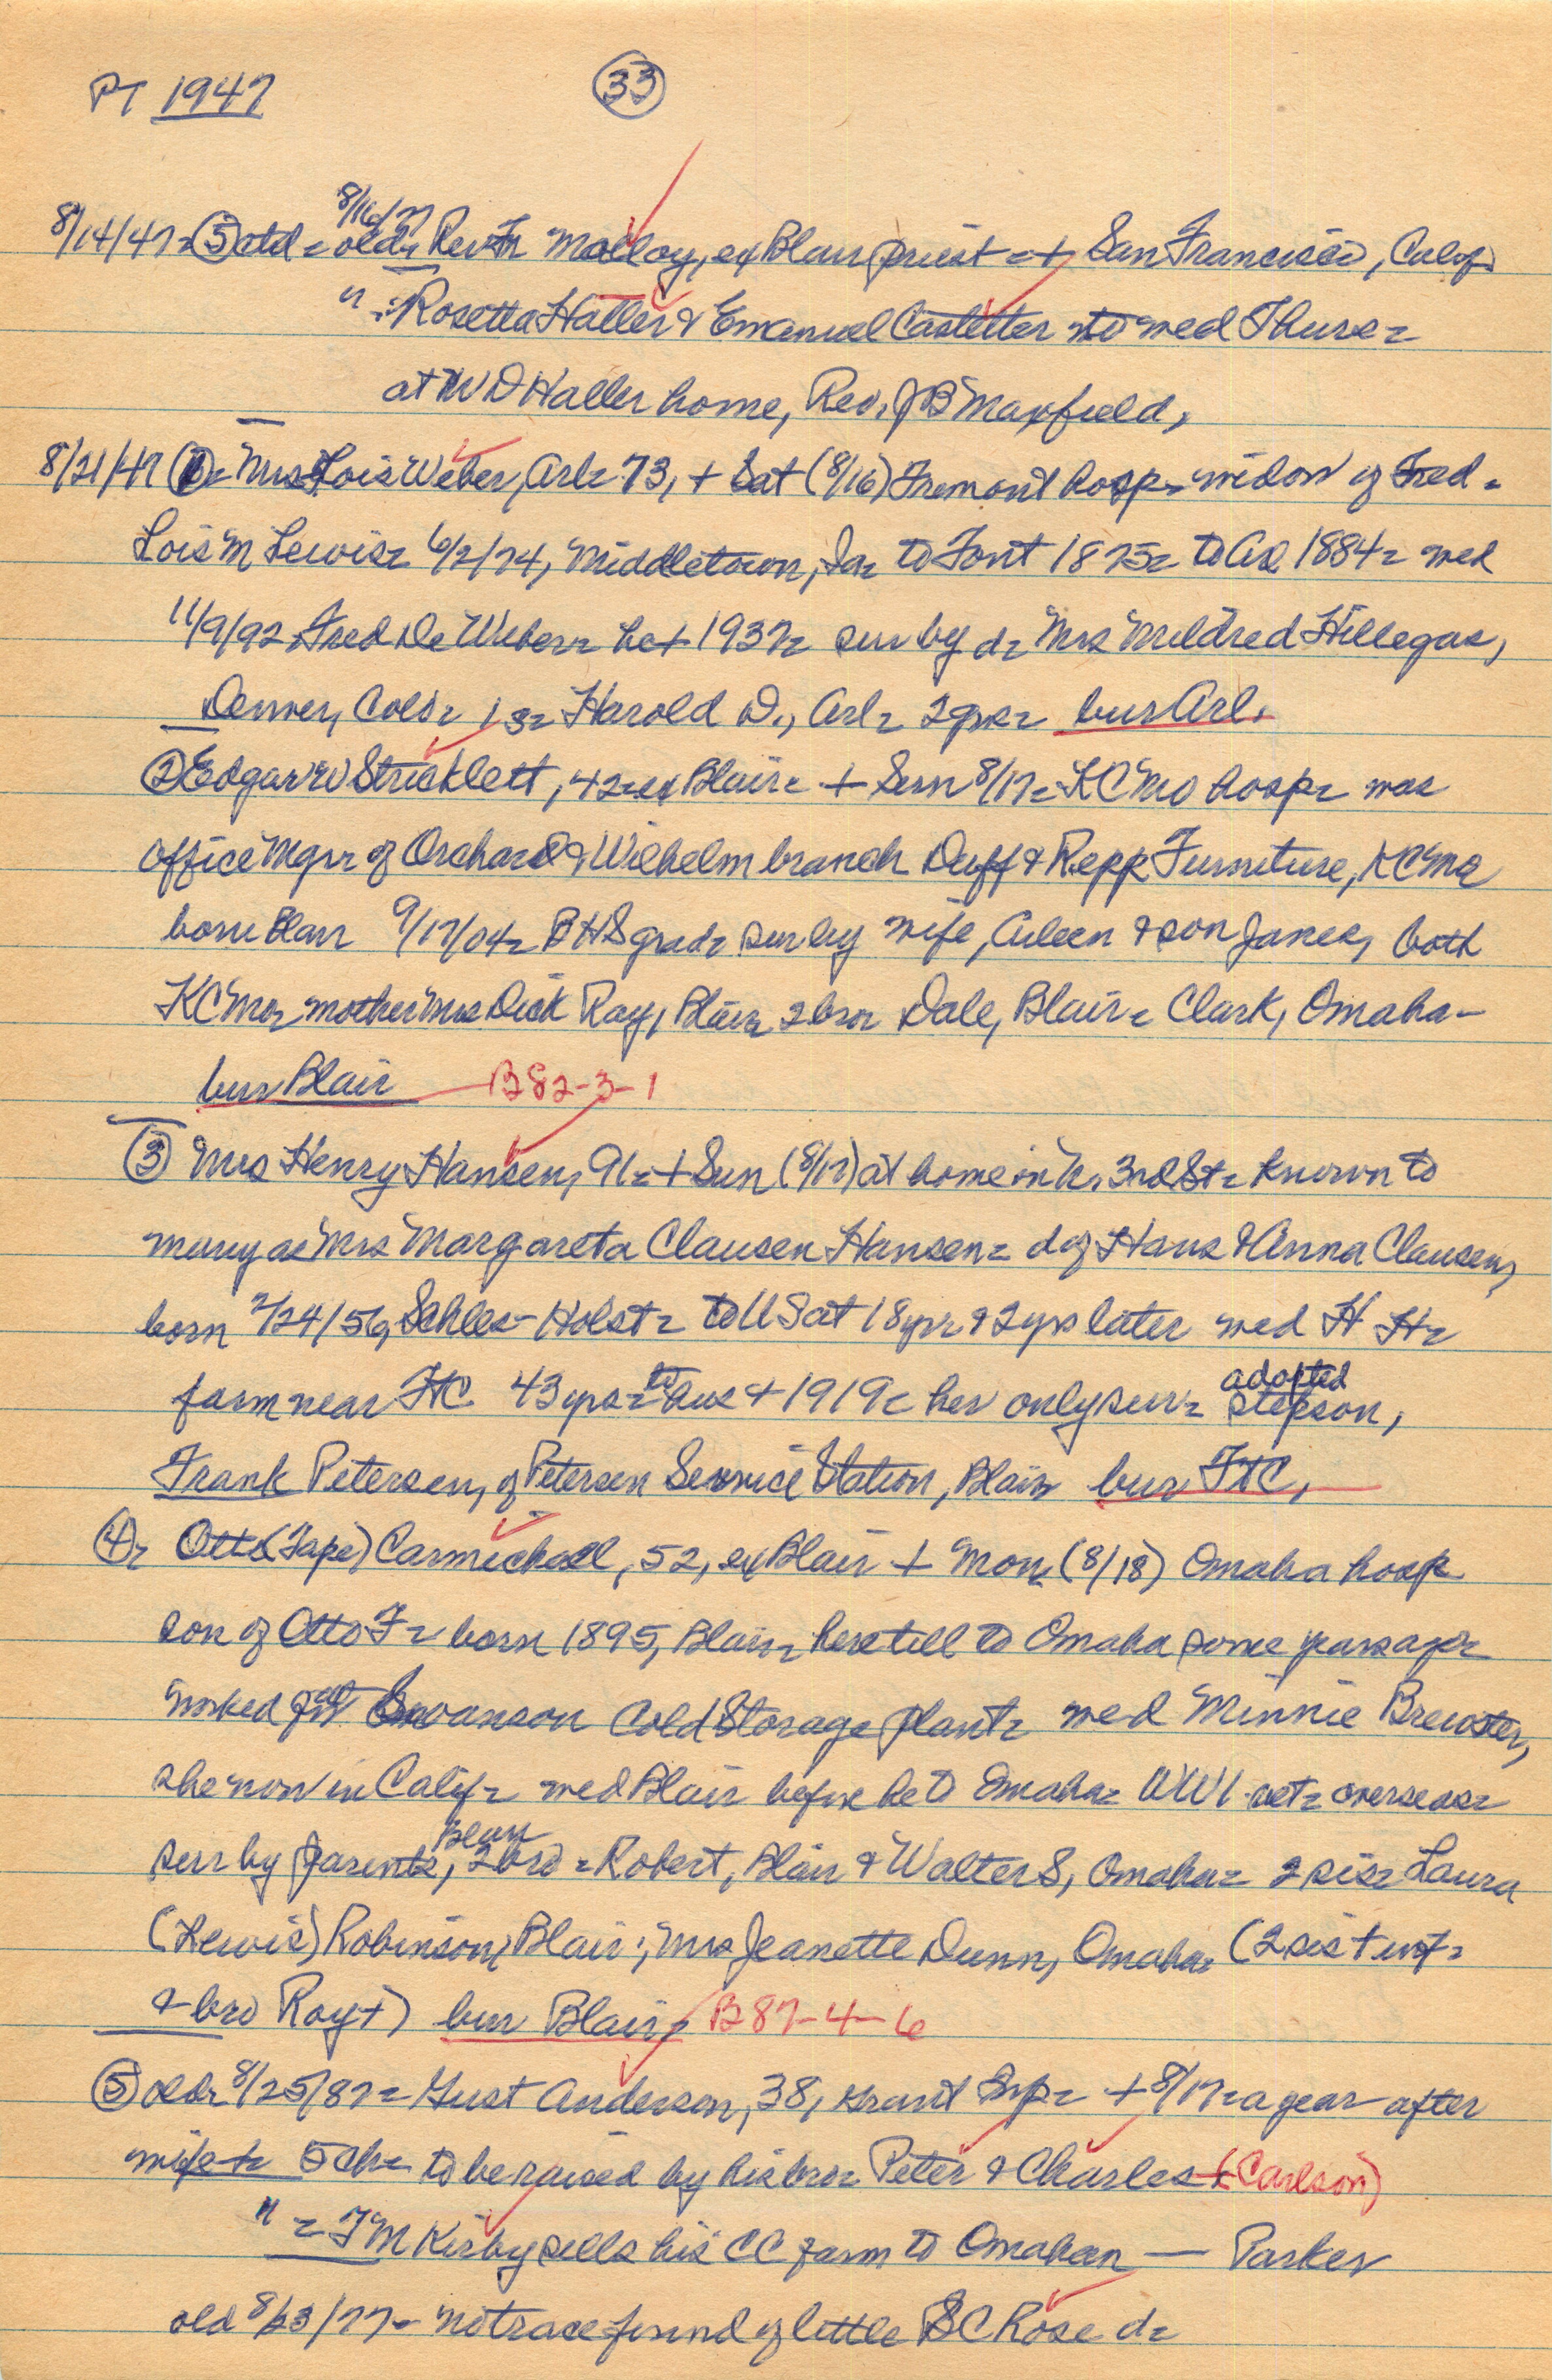 PT 1947
33
8/16/77
8/14/47 = 5 atd = old = Rev Fr Malloy, ex Blair priest = + San Francisco, Calif
" = Rosetta Haller & Emanuel Castetter to wed Thurs =
at W D Haller home, Rev. J B Maxfield,
8/21/47 1 = Mrs Lois Weber, Arl = 73, + Sat (8/16) Fremont hosp = widow of Fred =
Lois M Lewis = 6/2/74, Middletown, Ia = to Font 1875 = to Arl 1884 = wed
11/9/92 Fred De Weber = he + 1937 = sur by d = Mrs Mildred Hillegas,
Denver, Colo = 1 s = Harold D., Arl = 2 gs = bur Arl.
2 Edgar W Stricklett, 42 = ex Blair = + Sun 8/17 = KC Mo hosp = was
office mgr of Orchard & Wilhelm branch Duff & Repp Furniture, KC Mo
born Blair 9/17/04 = BHS grad = sur by wife, Arleen & son James, both
KC Mo = mother Mrs Dick Ray, Blair = 2 bro = Dale, Blair = Clark, Omaha -
bur Blair B82-3-1
3 Mrs Henry Hansen, 91 = + Sun (8/17) at home on N. 3rd St = known to
many as Mrs Margareta Clausen Hansen = d of Hans & Anna Clausen,
born 2/24/56, Schles-Holst = to US at 18 yr & 2 yrs later wed H H =
adopted
farm near FtC 43 yrs = hus + 1919 = her only sur = stepson,
Frank Petersen, of Petersen Service Station, Blair bur FtC,
4 = Otto (Tape) Carmichael, 52, ex Blair + Mon (8/18) Omaha hosp
son of Otto F = born 1895, Blair = here till to Omaha some years ago =
worked at Swanson Cold Storage plant = wed Minnie Brewster,
she now in Calif = wed Blair before he to Omaha = WW1 vet = overseas =
Blair
sur by parents, 2 bro = Robert, Blair & Walter S, Omaha = 2 sis = Laura
(Lewis) Robinson, Blair; Mrs Jeanette Dunn, Omaha = (2 sis + inf =
& bro Roy +) bur Blair, B87-4-6
5 old = 8/25/87 = Gust Anderson, 38, Grant Sup = + 8/17 = a year after
wife + = 5 ch = to be raised by his bro = Peter & Charles (Carlson)
" = J M Kirby sells his CC farm to Omahan — Parker
old 8/23/77 = no trace found of little S C Rose d =